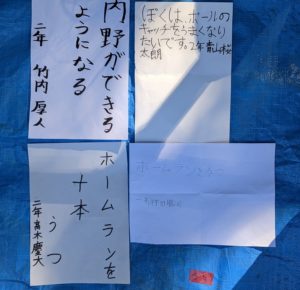 内野ができる
ようになる
二年 竹内 厚人
ぼくは、ボールの
キャッチをうまくなり
たいです。2年
太朗
ホームランを
十本
うつ
二年高木慶大
ホームランをうつ